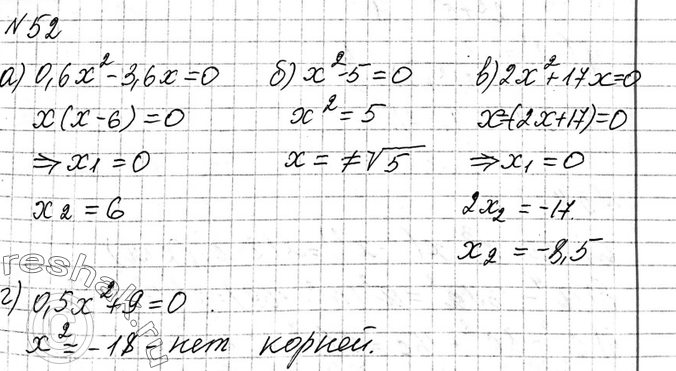 №52
а) 0,6x² - 3,6x = 0
x(x - 6) = 0
⇒ x₁ = 0
x₂ = 6
б) x² - 5 = 0
x² = 5
x = ±√5
в) 2x² + 17x = 0
x(2x + 17) = 0
⇒ x₁ = 0
2x₂ = -17
x₂ = -8,5
г) 0,5x² + 9 = 0
x² = -18 - нет корней.
reshak.ru